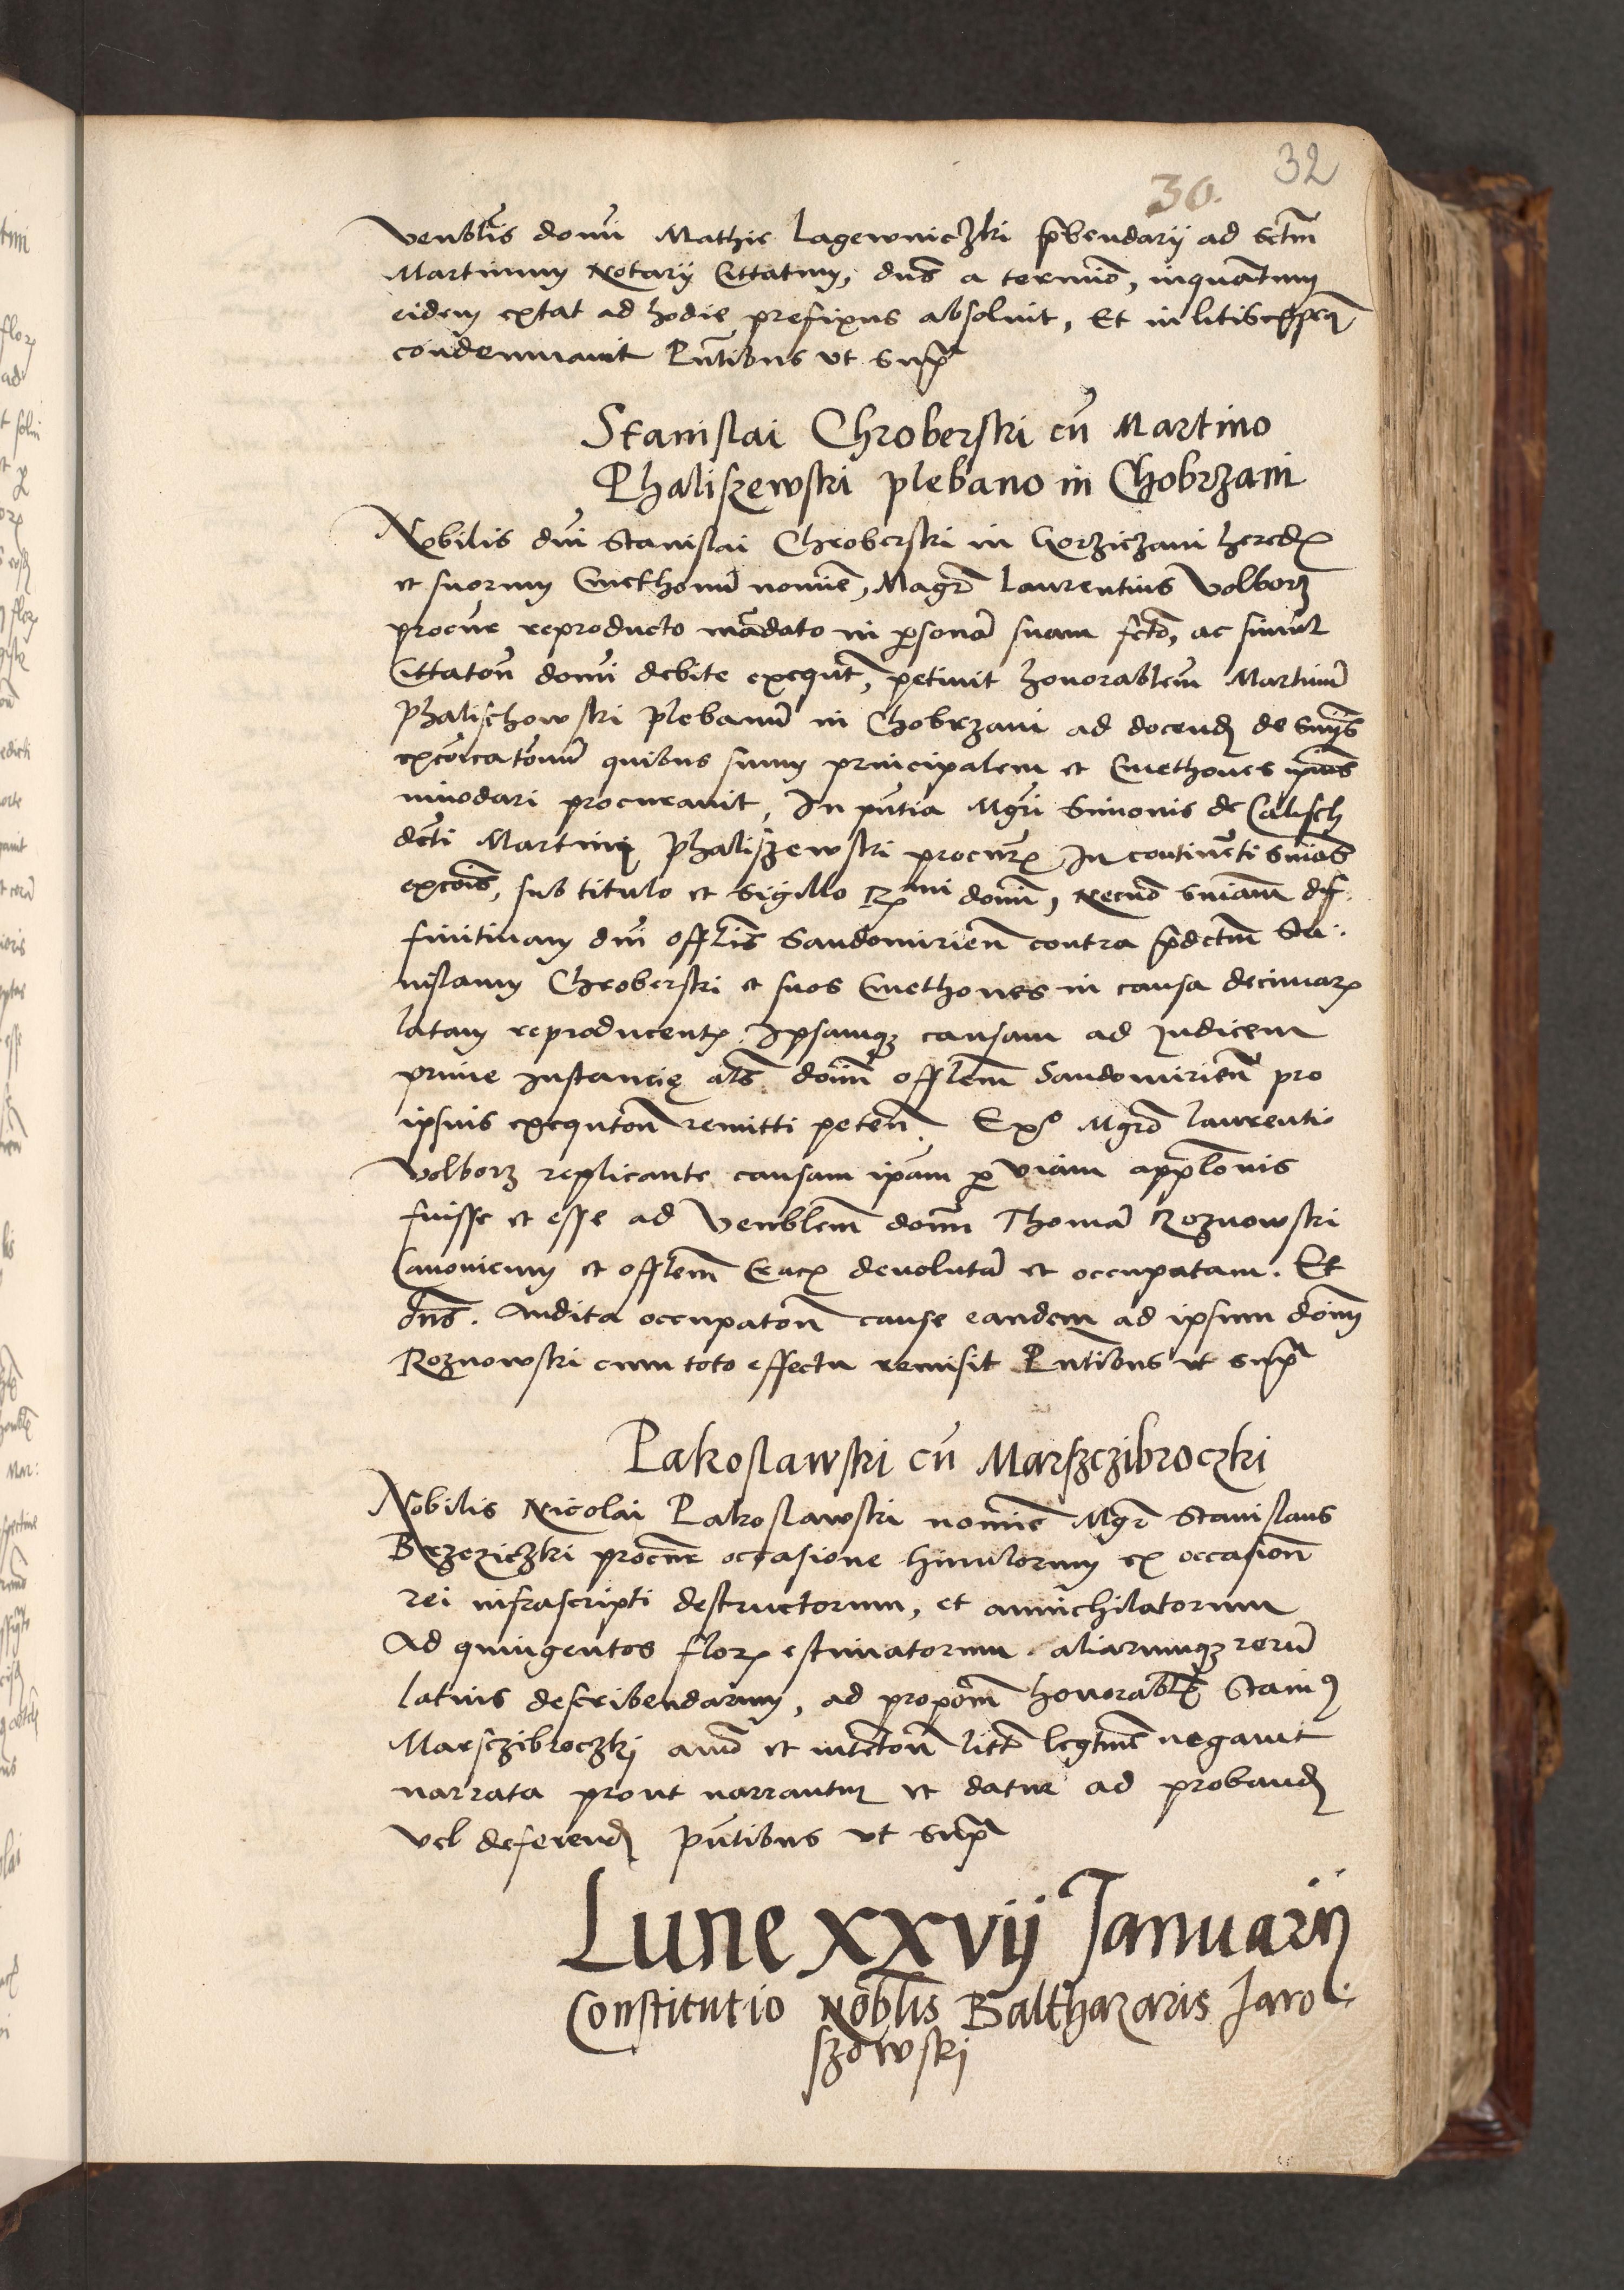 32
30.
Venblis domi Mathie Lagewniczki p̃bendarij ad sctm̃
Martinum Notarij Cittatum, dns a termio, inquantum
eidem extat ad hodie prefixus absoluit, Et in litis exp̃
condemnauit Pñtibus vt sup̃
Stanislai Chroberski cũ Martino
Phaliszewski plebano in Chobrzani
Nobilis dñi Stanislai Chroberski in Gorziczani hered
et suorum Cmethonũ nomie, Magr̃ Laurentius Volborz
procur reproducto mãdato in p̱sonã suam fcto, ac simul
Cittatoñ domi debite exequt̃, petiuit honorablem̃ Martinũ
Phalischowski plebanũ in Chobrzani ad docend de snijs
excõicatonũ quibus suum principalem et Cmethones ipius
innodari procurauit, In pñtia Mgri Simonis de Calisch
dcti Martini Phaliszewski procur, In continẽti snias
excõis, sub titulo et sigillo R mi domi, Necno sniam dif
finitiuam dñi offlis Sandomirieñ contra p̃dctm̃ Sta
nislaum Chroberski et suos Cmethones in causa decimar
latam reproducent, Ipsamqz causam ad Iudicem
prime Instancię als domĩ offlem̃ Sandomirieñ pro
ipsius exequtoñ remitti peteñ. Exº Mgro Laurentio
Volborz replicante causam ipam p̱ viam applonis
fuisse et esse ad Venblem̃ domĩ Thomã Roznowski
Canonicum et offlem̃ Crac deuolutã et occupatam. Et
dns. Audita occupatoñ cause eandem ad ipsum domĩ
Roznowski cum toto effectu remisit Pñtibus vt sup̃
Pakoslawski cũ Marszczibroczki
Nobilis Nicolai Pakoslawski nomie Mgr̃ Stanislaus
Brzeziczki procur occasione hinulorum ex occasioñ
rei infrascripti destructorum, et annichilatorum
Ad quingentos flor estimatorum aliarumqz rerũ
latius describendarum, ad propom̃ honorabl Stani
Marsczibroczkj aĩo et intetoñ litt̃ legtme negauit
narrata prout narrantur et datur ad proband
vel deferend pñtibus vt sup̃
Lune XXVIJ Januarij
Constitutio Noblis Balthazaris Jarol
szowskj